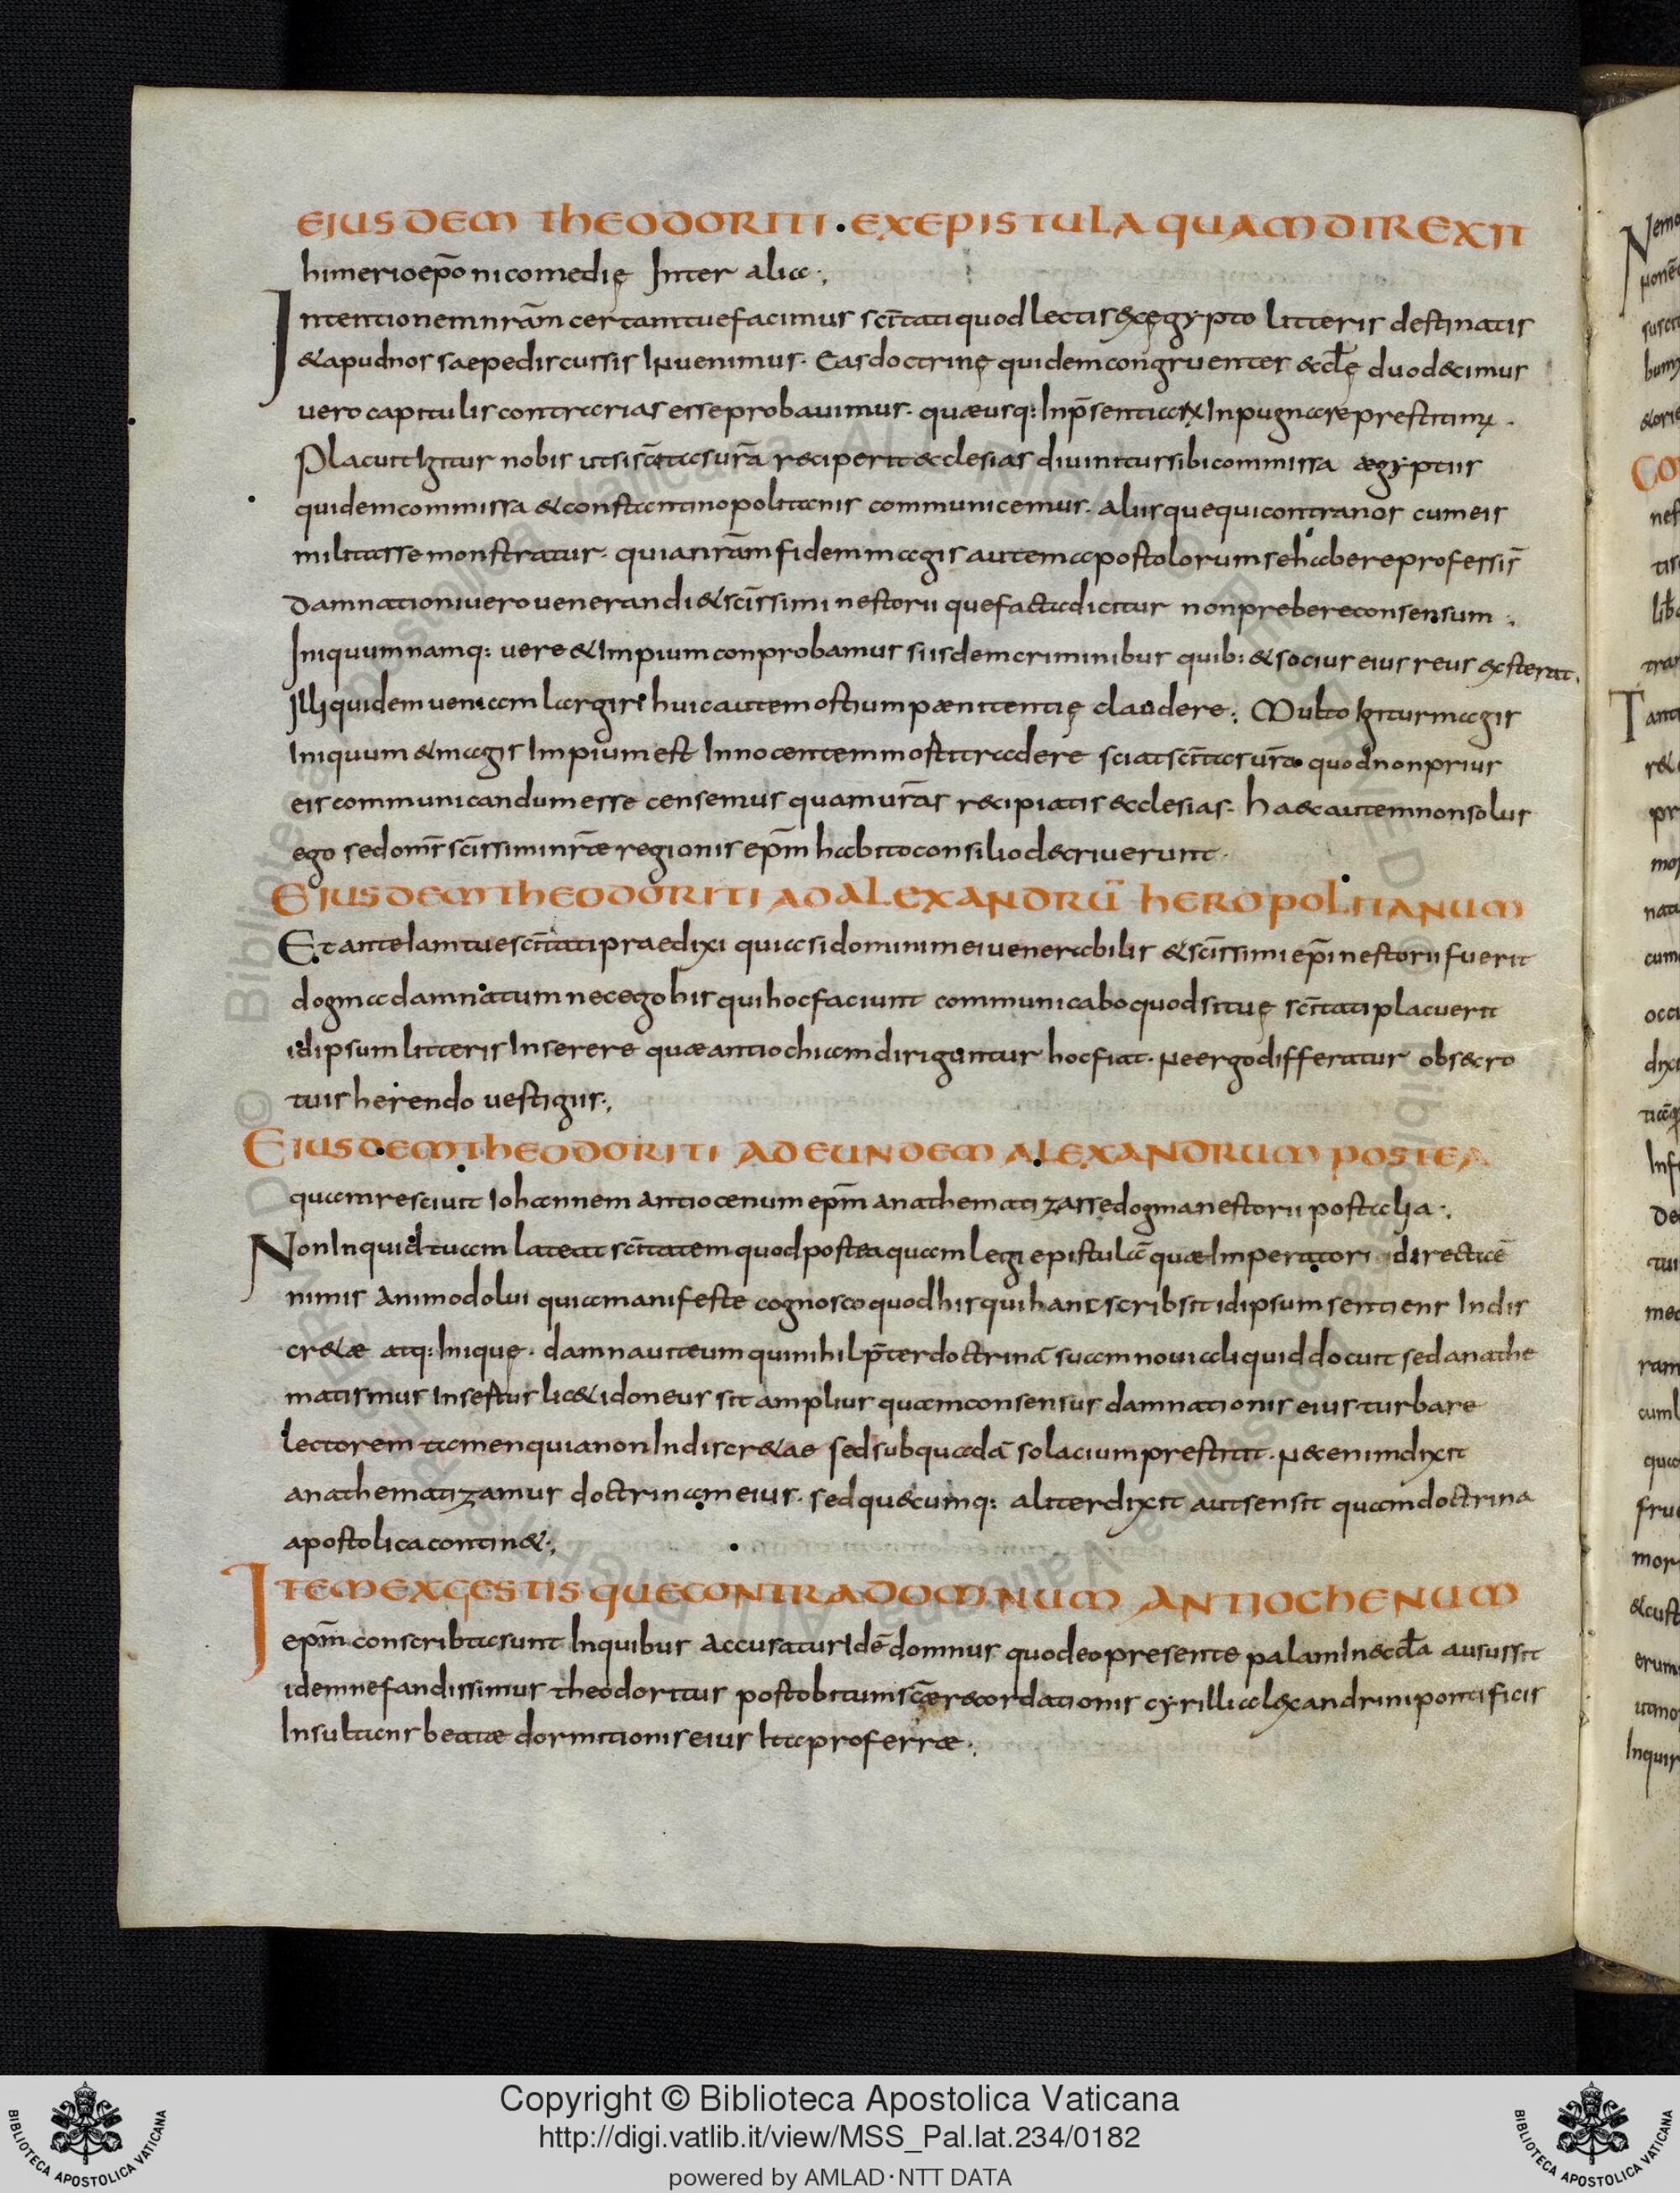 EJUSDEM THEODORITI · EX EPISTULA QUAM DIREXIT
himerio ep̄o nicomedię Inter alia ·;
Intentionem nr̄am certam tuę facimus sc̄itati quod lectis & ex ęgypto litteris destinatis
& apud nos saepe discussis Inuenimus · Eas doctrinę quidem congruenter ęccl̄ę duodecimus
uero capitulis contrarias esse probauimus · quæ usq: In p̄sentia
Placuit Igitur nobis ut si sc̄itas ur̄a reciperit ecclesias diuinitus sibi commissa ægyptiis
quidem commissa & constantinopolitanis communicemus · aliisque qui contra nos cum eis
militasse monstratur · quia nr̄am fidem magis autem apostolorum se habere professi s̄
damnationi uero uenerandi & sc̄issimi nestorii que facta dicitur non prebere consensum ·;
Iniquum namq: uere & Impium conprobamus si isdem criminibus quib: & socius eius reus exsterat.
Illi quidem ueniam largiri huic autem ostium pænitentię claudere ·; Multo Igitur magis
Iniquum & magis Impium est Innocentem mosti tradere sciat sc̄itas ur̄a quod non prius
eis communicandum esse censemus quam ur̄as recipiatis ecclesias · haec autem non solus
ego sed om̄s sc̄issimi nr̄æ regionis ep̄m habito consilio decriuerunt ·
EJUSDEM THEODORITI AD ALEXANDRŪ HEROPOLITANUM
Et ante Iam tuę sc̄itati praedixi quia si domini mei uenerabilis & sc̄issimi ep̄i nestorii fuerit
dogma damnatum nec ego his qui hoc faciunt communicabo quod si tuę sc̄itati placuerit
idipsum litteris Inserere quæ antiochiam diriguntur hoc fiat · Ne ergo differatur obsecro
tuis herendo uestigiis ·;
EIUSDEM THEODORITI AD EUNDEM ALEXANDRUM POSTEA
quam resciuit Iohannem antiocenum ep̄m anathematizasse dogma nestorii post alia ·;
Non Inquid tuam lateat sc̄itatem quod postea quam legi epistulā quæ Imperatori directa ē
nimis animo dolui quia manifeste cognosco quod his qui hanc scribsit idipsum sentiens Indis
cr&æ atq: Inique · damnauit eum qui nihil p̄ter doctrinā suam noui aliquid docuit sed anathe
matismus Insestus lic& idoneus sit amplius quam consensus damnationis eius turbare
lectorem tamen quia non Indiscr&ae sed sub quadā solacium prestitit · Nec enim dixit
anathematizamus doctrinam eius · sed quecumq: aliter dixit aut sensit quam doctrina
apostolica contin& ·;
ITEM EX GESTIS QUE CONTRA DOMNUM ANTIOCHENUM
ep̄m conscribta sunt In quibus accusatur Idē domnus quod eo presente palam In eccl̄a ausus sit
idem nefandissimus theodoritus post obitum sc̄æ recordationis cyrilli alexandrini pontificis
Insultans beatæ dormitionis eius Ita proferræ ·;
Copyright © Biblioteca Apostolica Vaticana
http://digi.vatlib.it/view/MSS_Pal.lat.234/0182
powered by AMLAD·NTT DATA